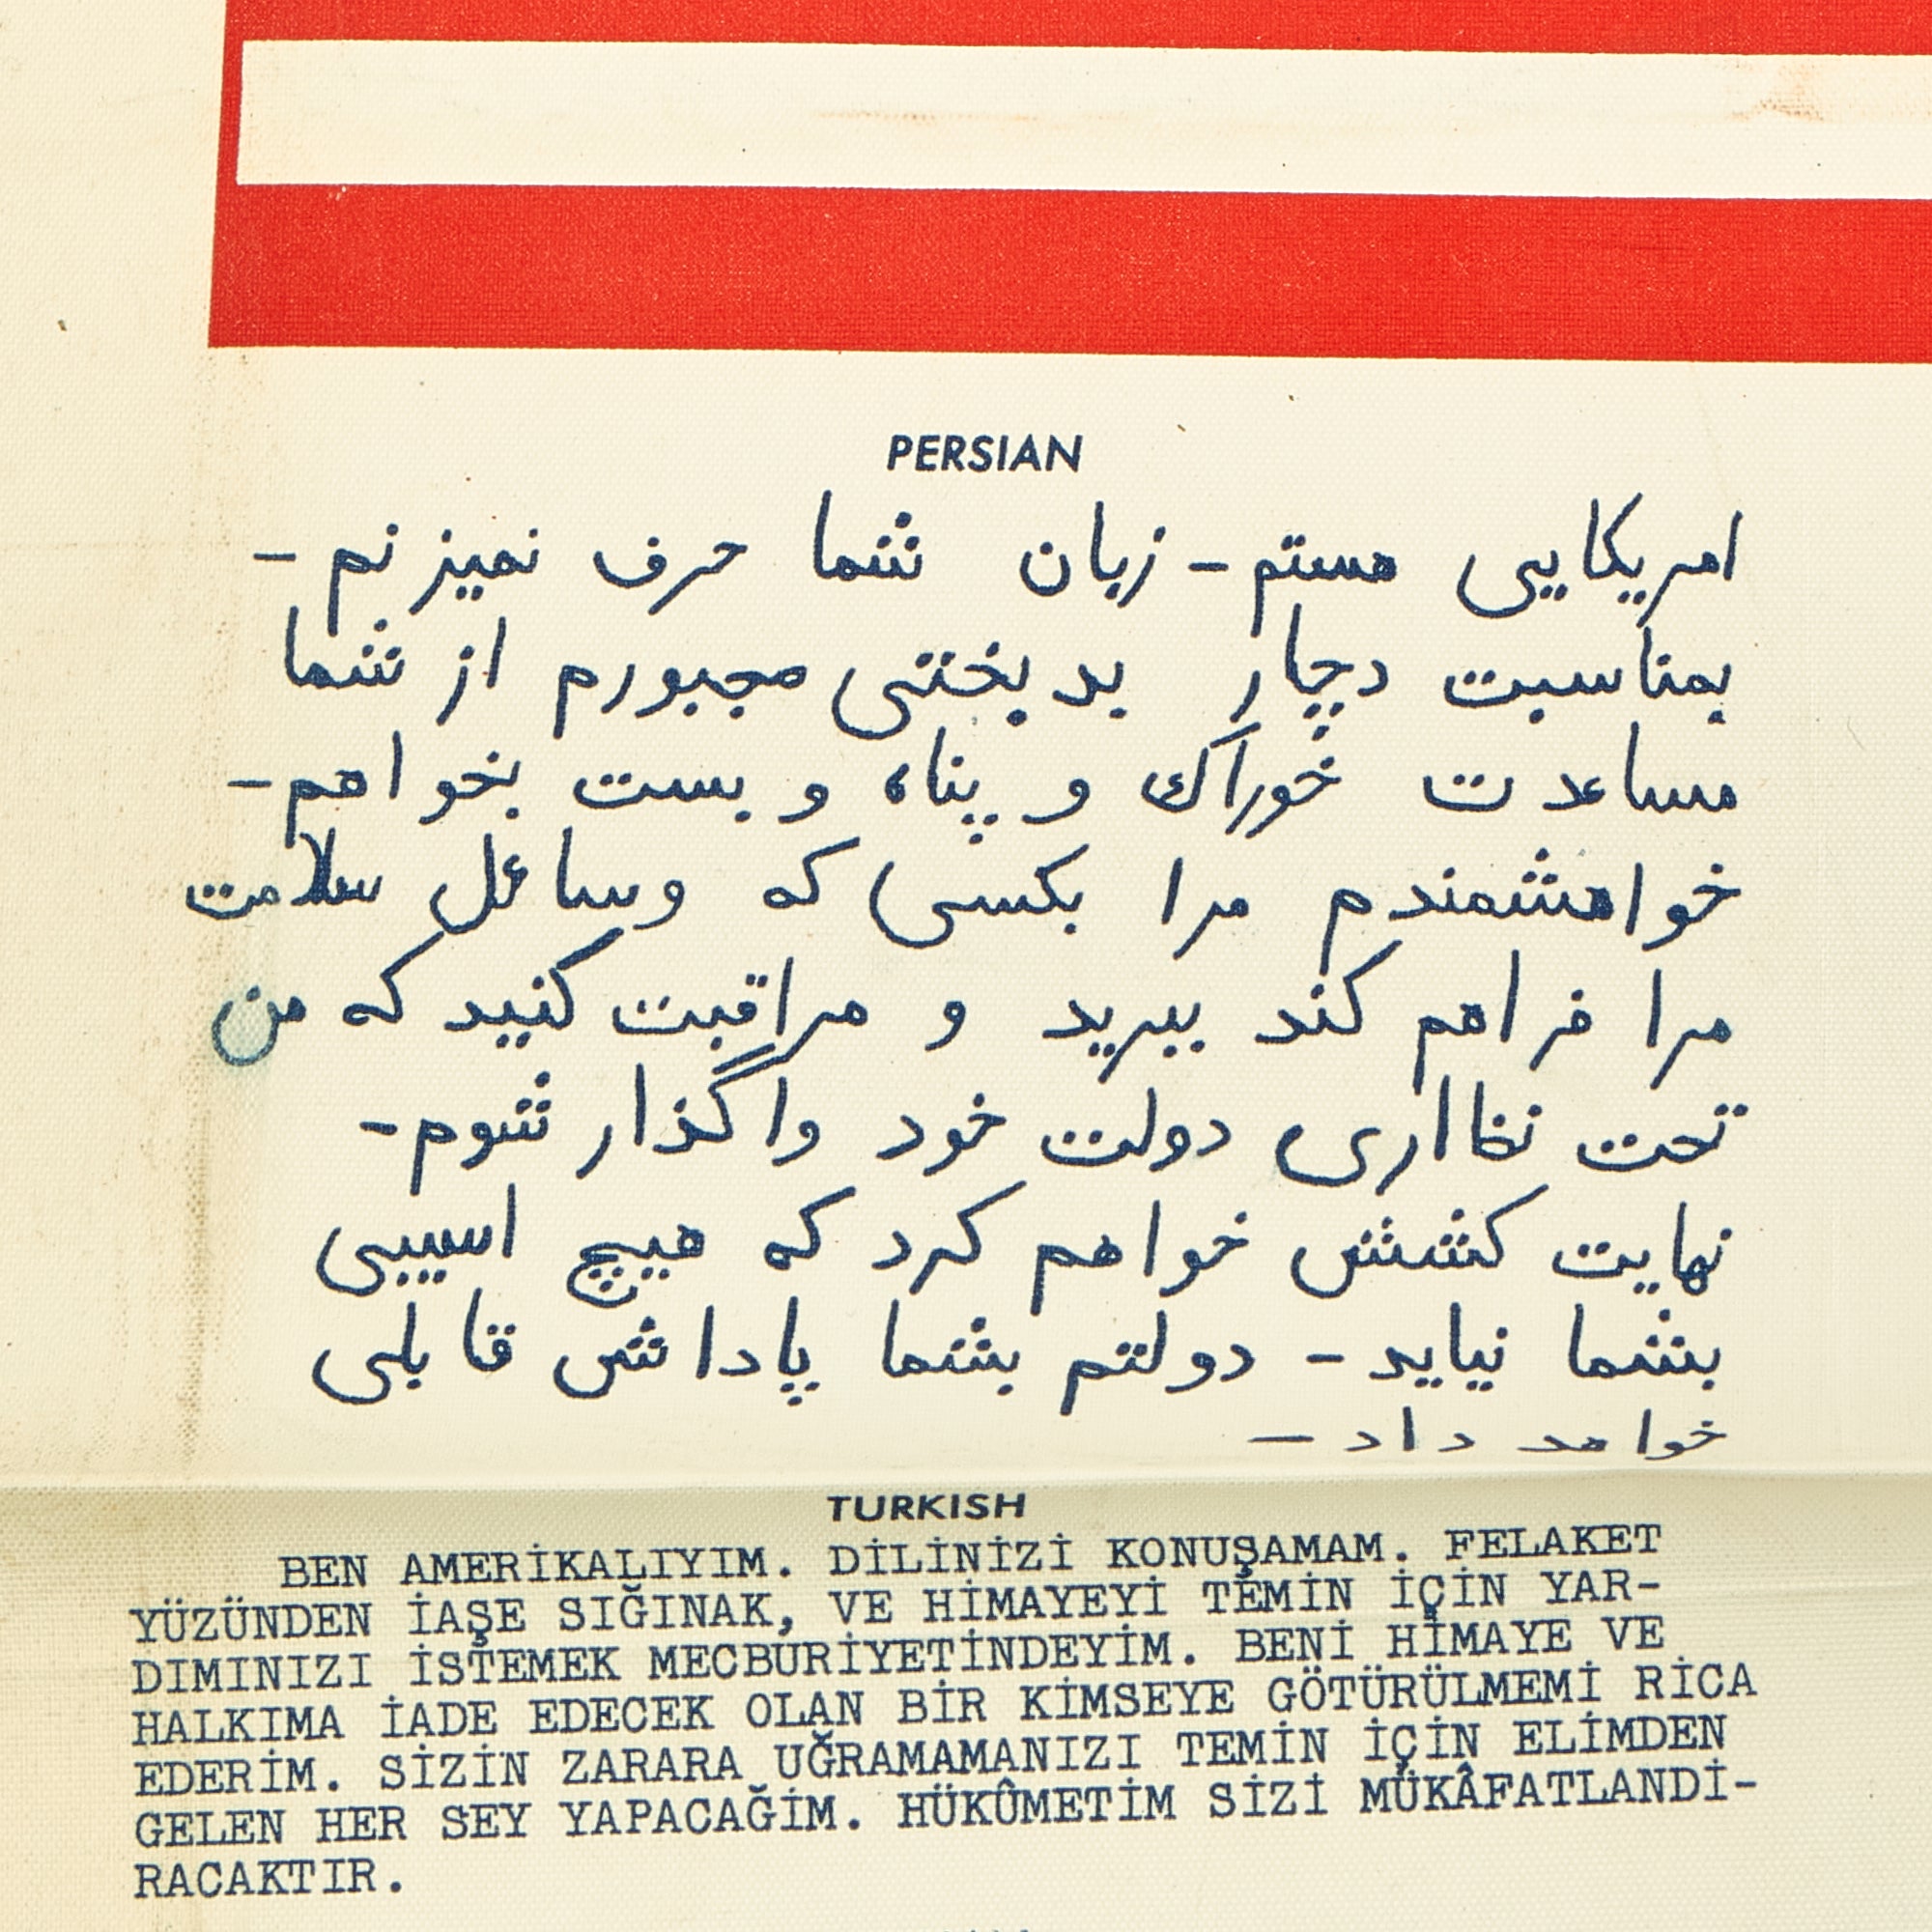 PERSIAN
امریکایی هستم - زبان شما حرف نمیزنم -
بمناسبت دچار بدبختی مجبورم از شما
مساعدت خوراک و پناه و بست بخواهم -
خواهشمندم مرا بکسی که وسائل سلامت
مرا فراهم کند ببرید و مراقبت کنید که من
تحت دولت خود واگذار شوم -
نهایت کشش خواهم کرد که هیچ اسیبی
بشما نیاید - دولتم بشما پاداش قابلی
خواهد داد -
TURKISH
BEN AMERİKALIYIM. DİLİNİZİ KONUŞAMAM. FELAKET
YÜZÜNDEN İAŞE SIĞINAK, VE HİMAYEYİ TEMİN İÇİN YAR-
DIMINIZI İSTEMEK MECBURİYETİNDEYİM. BENİ HİMAYE VE
HALKIMA İADE EDECEK OLAN BİR KİMSEYE GÖTÜRÜLMEMİ RİCA
EDERİM. SİZİN ZARARA UĞRAMAMANIZI TEMİN İÇİN ELİMDEN
GELEN HER SEY YAPACAĞİM. HÜKÛMETİM SİZİ MÜKÂFATLANDİ-
RACAKTIR.